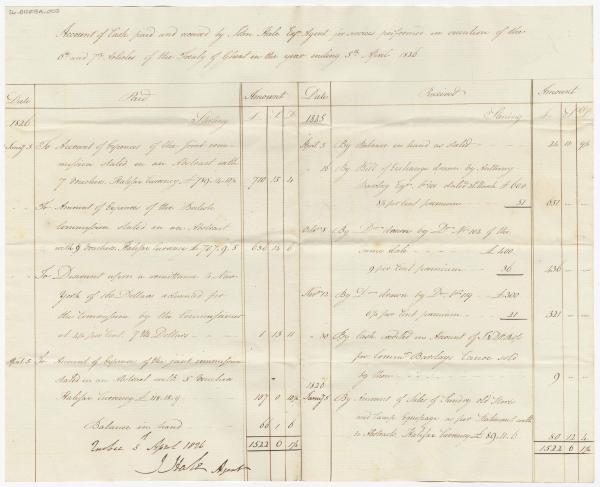 Account of Cash paid and received by John Hale Esqr. Agent for services performed in execution of the
6th and 7th Articles of the Treaty of Ghent in the year ending 5th April 1826
Date Paid Amount
Sterling £ S D
1826
Jany 5 To Account of Expences of the joint com-
mission stated in an Abstract with
7 Vouchers. Halifax Currency £ 789. 4. 10½ 710 15 4
To Amount of Expences of the British
Commission stated in an Abstract
with 9 Vouchers. Halifax Currency £ 707. 9. 5 636 14 6
To Discount upon a remittance to New
York of the Dollars advanced for
the Commission by the Commissioner
at per Cent. Dollars 1 13 11
April 5 To Amount of Expences of the joint commission
stated in an Abstract with 5 Vouchers
Halifax Currency £ 118. 18. 9 107 0 10½
Balance in hand 66 1 6
1522 6 1½
Quebec 5th April 1826
J Hale Agent
Date Received Amount
Sterling £ S D
1825
April 5 By Balance in hand as stated 24 11 9½
16 By Bill of Exchange drawn by Anthony
Barclay Esqr. No. dated £ 600
per cent premium 51 651
Octr 8 By Do. drawn by Do. No. 102 of the
same date £ 400
9 per cent premium 36 436
Novr 12 By Do. drawn by Do. No. 119 £ 300
per cent premium 21 321
30 By Cash credited in Amount of
for Commr. Barclays Canoe sold
by them 9
1826
Jany 5 By Amount of Sales of Sundry old Stores
and Camp Equipage as per Statement with
to Abstract. Halifax Currency £ 89. 11. 6 80 12 4
1522 6 1½